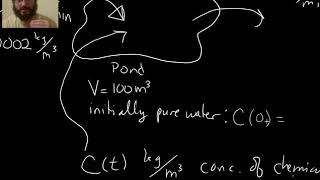 min
m³
0002 kg/m³
Pond
V=100m³
initially pure water: C(0) =
C(t) kg/m³ conc. of chemical